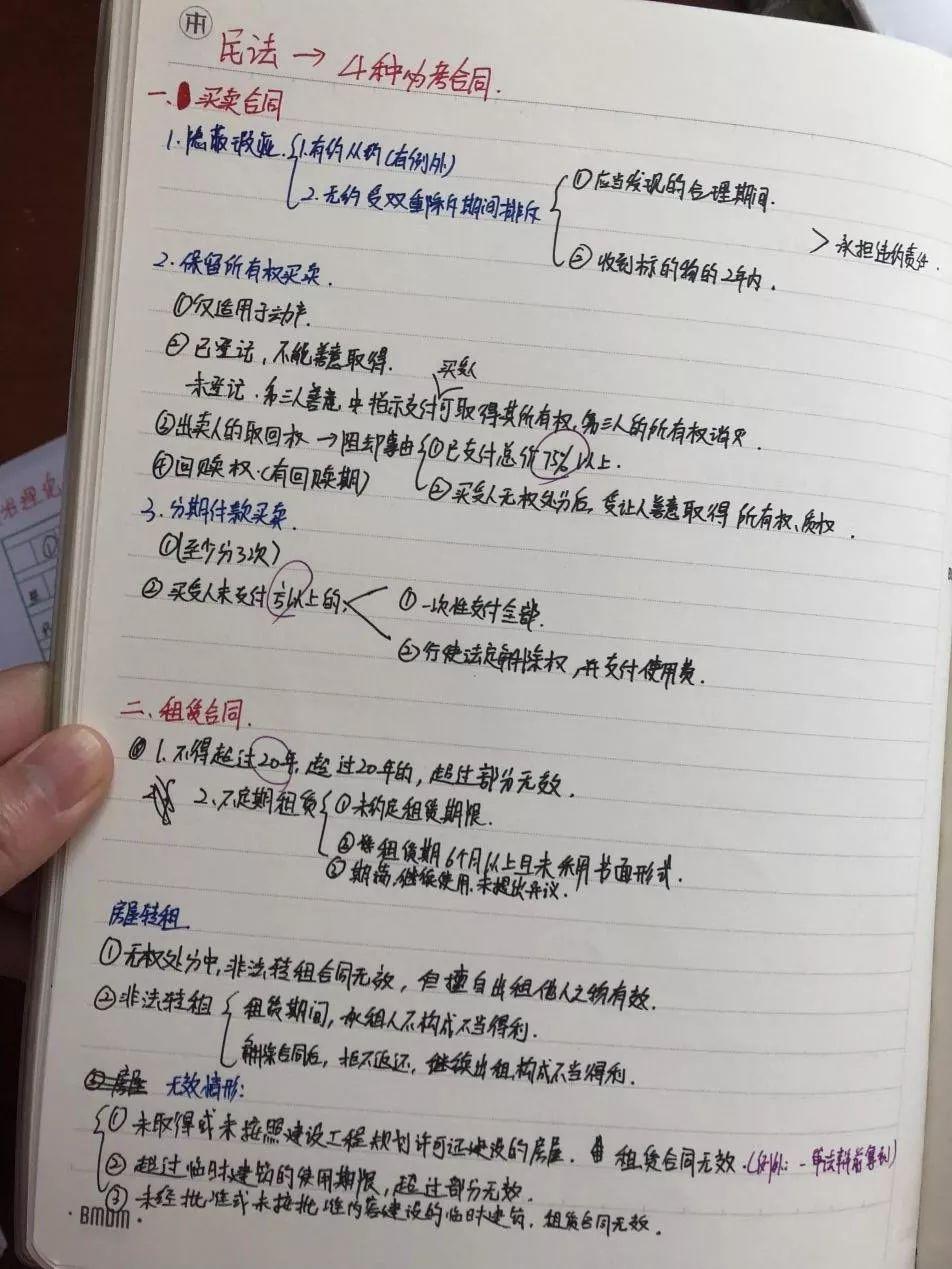 民法 → 4种必考合同.
一、买卖合同
1. 隐蔽瑕疵 1. 有约从约(有例外)
2. 无约受双重除斥期间排斥
① 应当发现的合理期间.
② 收到标的物的2年内.
> 承担违约责任.
2. 保留所有权买卖.
①仅适用于动产.
② 已登记, 不能善意取得.
买受人
未登记. 第三人善意, 中指示交付可取得其所有权, 第三人的所有权消灭.
③出卖人的取回权 → 阻却事由 ①已支付总价75%以上.
②买受人无权处分后, 受让人善意取得所有权、质权.
④回赎权.(有回赎期)
3. 分期付款买卖.
①(至少分3次)
② 买受人未支付⅕以上的,
① 一次性支付全部.
② 行使法定解除权, 并支付使用费.
二、租赁合同.
1. 不得超过20年, 超过20年的, 超过部分无效.
2. 不定期租赁 ① 未约定租赁期限.
② 租赁期6个月以上且未采用书面形式.
③ 期满, 继续使用. 未提出异议.
房屋转租
① 无权处分中, 非法转租合同无效, 但擅自出租他人之物有效.
②非法转租 租赁期间, 承租人不构成不当得利.
解除合同后, 拒不返还, 继续出租, 构成不当得利.
无效情形:
① 未取得或未按照建设工程规划许可证建设的房屋. 租赁合同无效.(例外: 一审法辩前得到)
② 超过临时建筑的使用期限, 超过部分无效.
③ 未经批准或未按批准内容建设的临时建筑, 租赁合同无效.
· BMDM ·